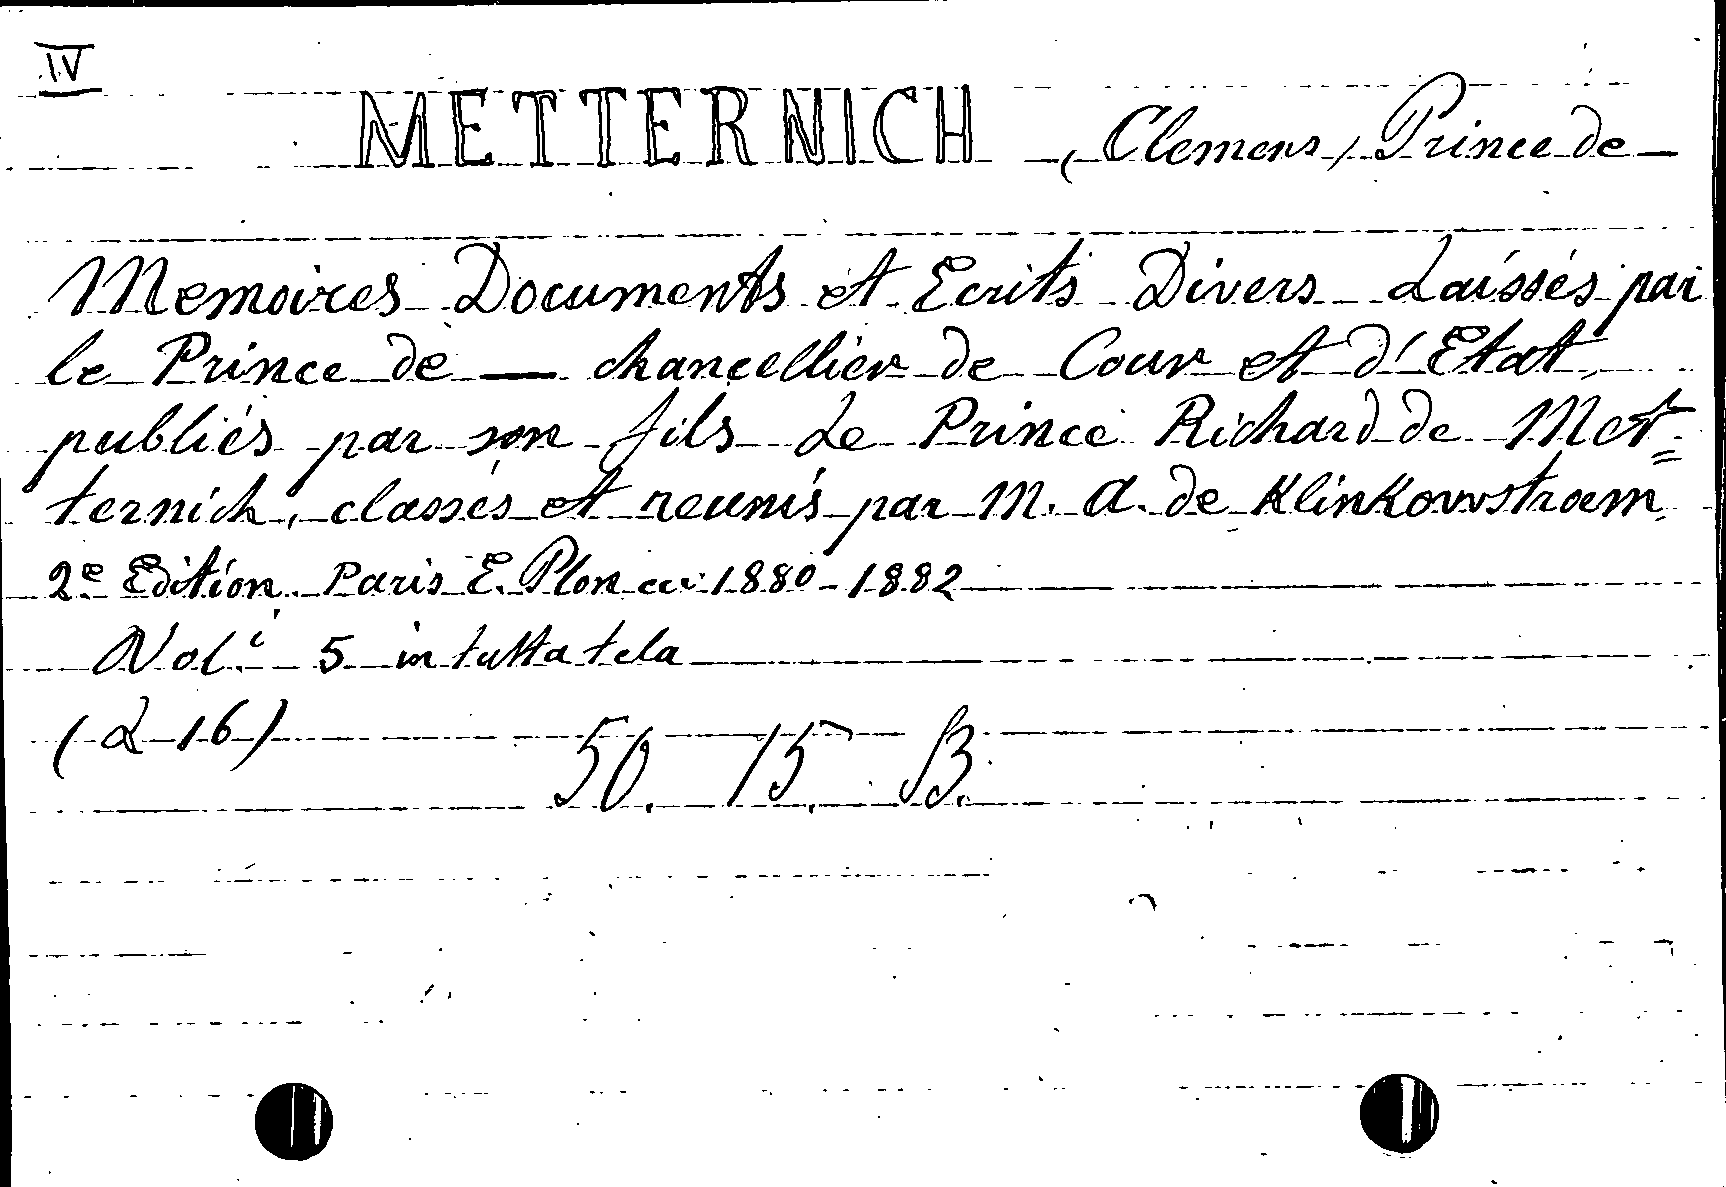 IV
METTERNICH, Clemens, Prince de —
Memoires Documents et Ecrits Divers Laissés par
le Prince de — chancellier de Cour et d'Etat,
publiés par son fils Le Prince Richard de Met=
ternich, classés et reunis par M. A. de Klinkowstroem
2e Edition. Paris E. Plon ecc. 1880-1882
Vol.i 5 in tutta tela
(L 16)
50. 15. B.